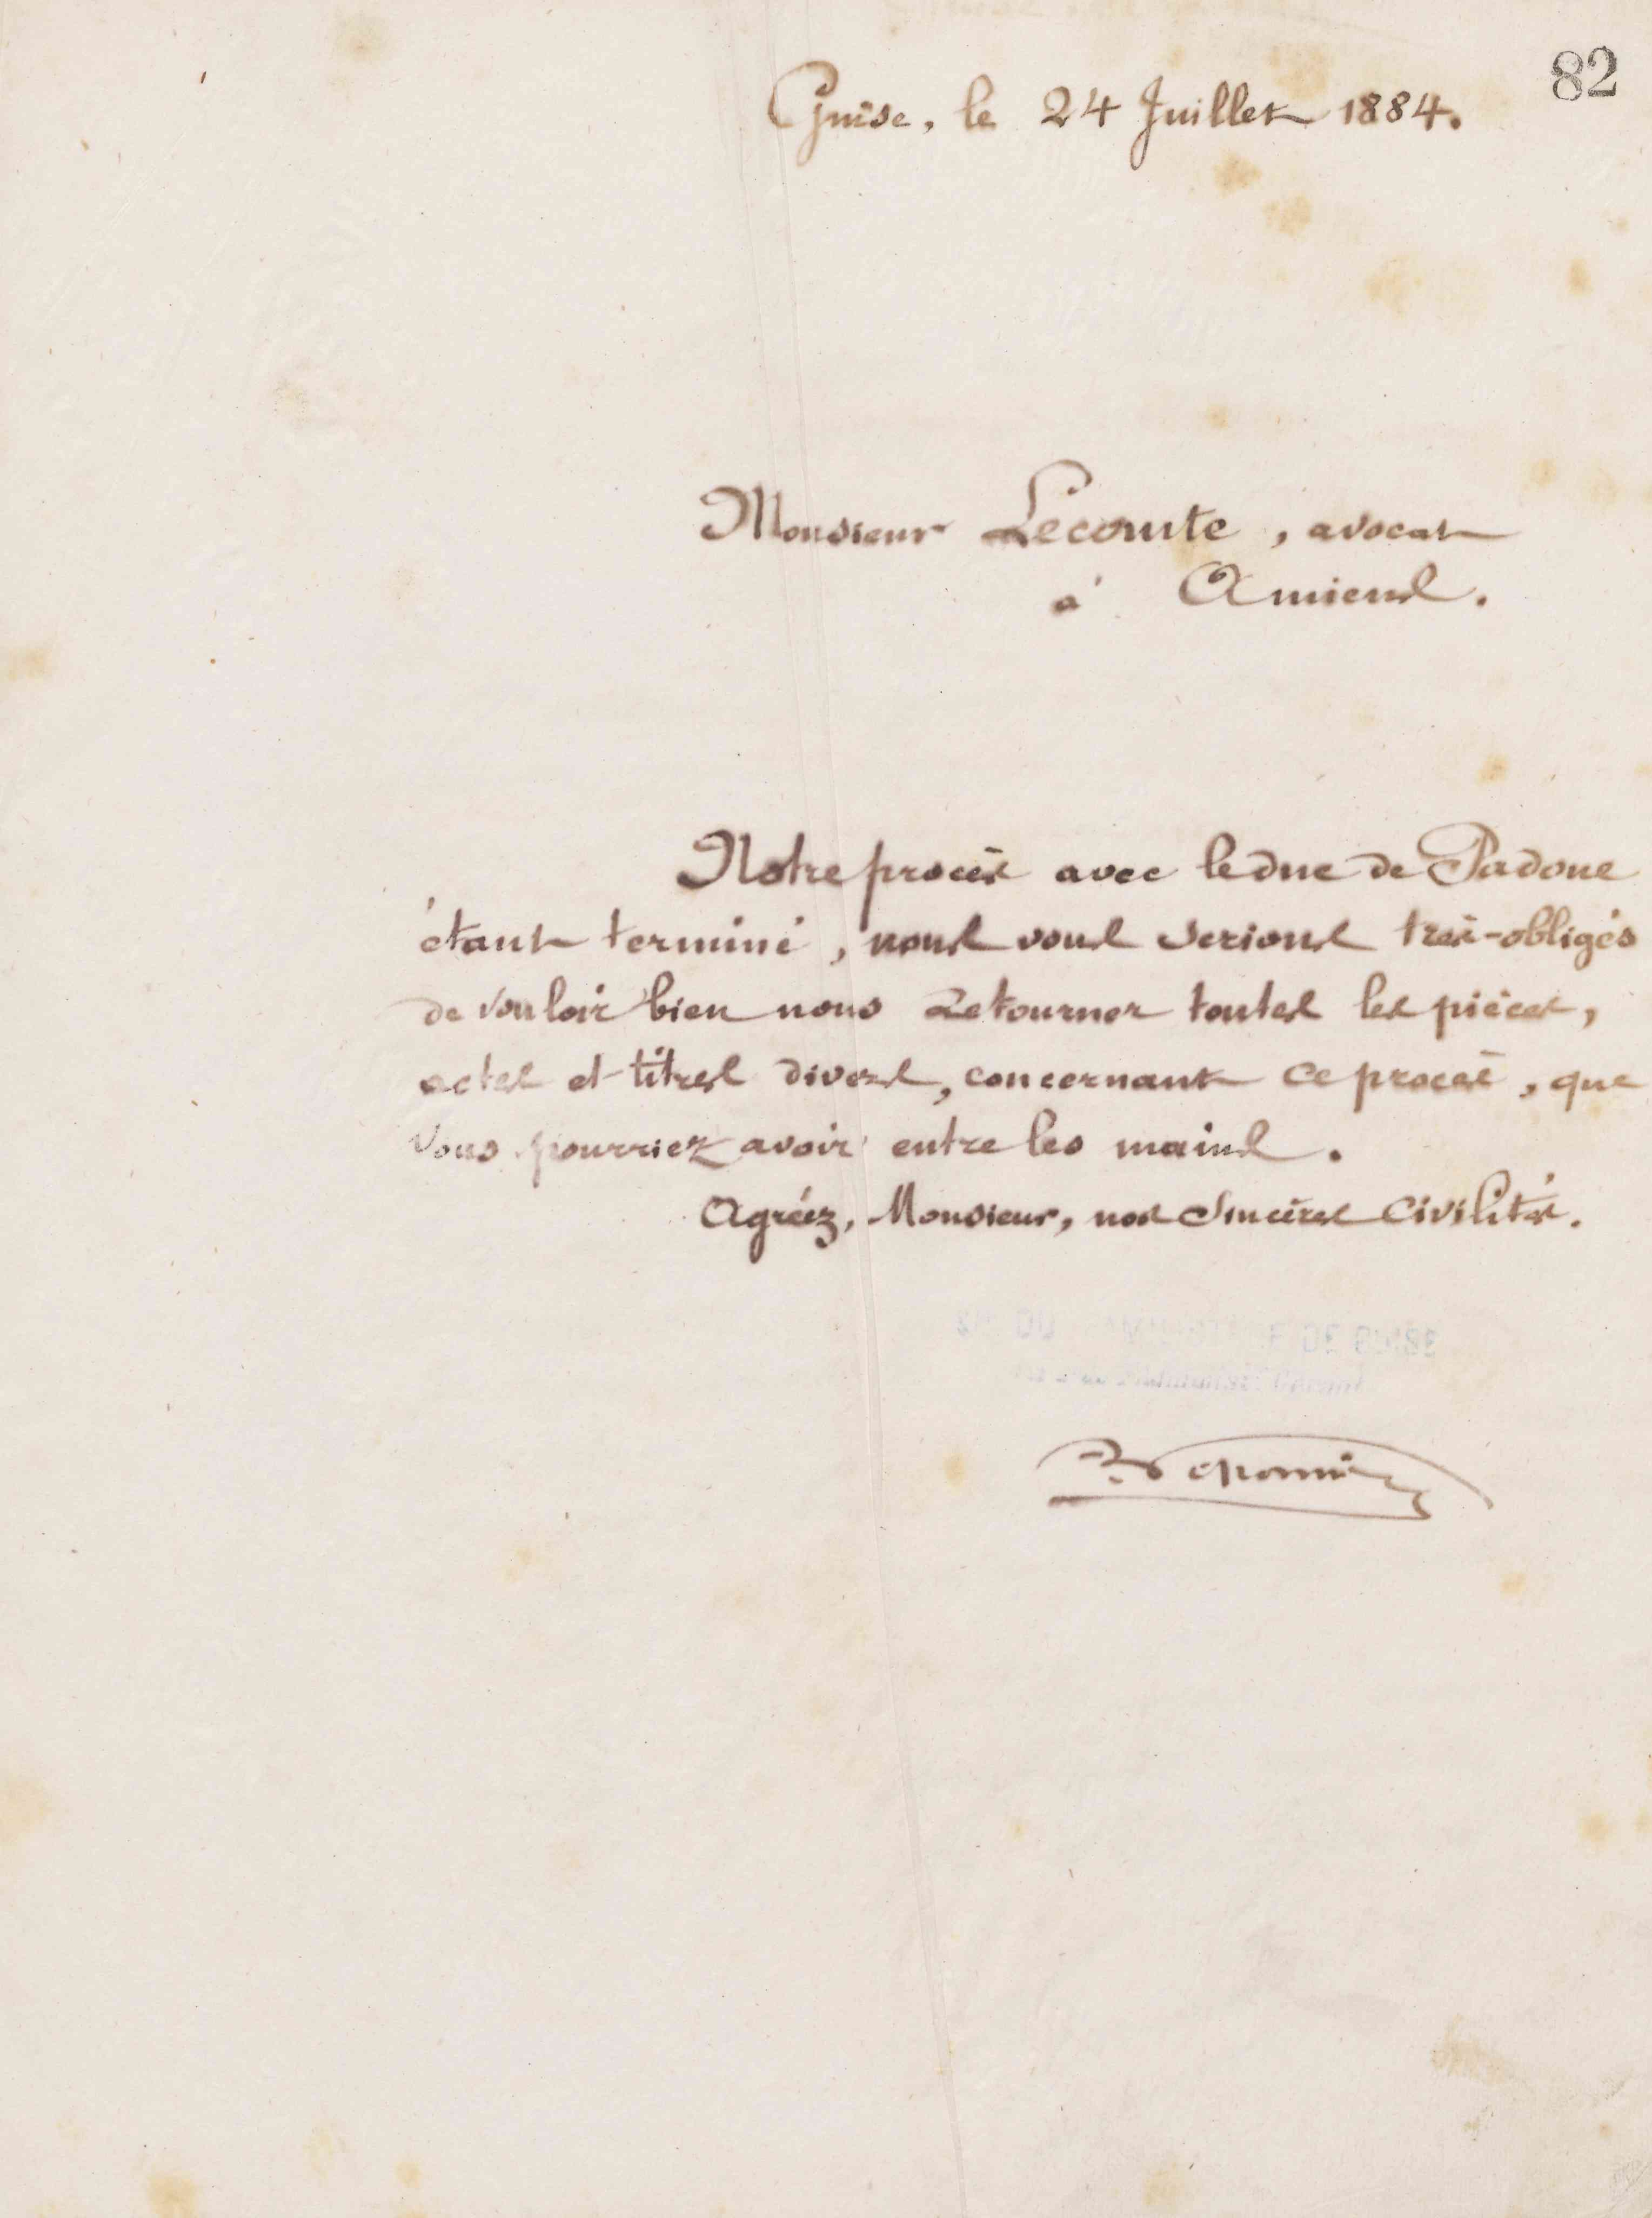 82
Guise, le 24 Juillet 1884.
Monsieur Lecomte, avocat
à Amiens.
Notre procès avec le duc de Padoue
étant terminé, nous vous serions très-obligés
de vouloir bien nous retourner toutes les pièces,
actes et titres divers, concernant ce procès, que
vous pourriez avoir entre les mains.
Agréez, Monsieur, nos sincères civilités.
DE GUISE